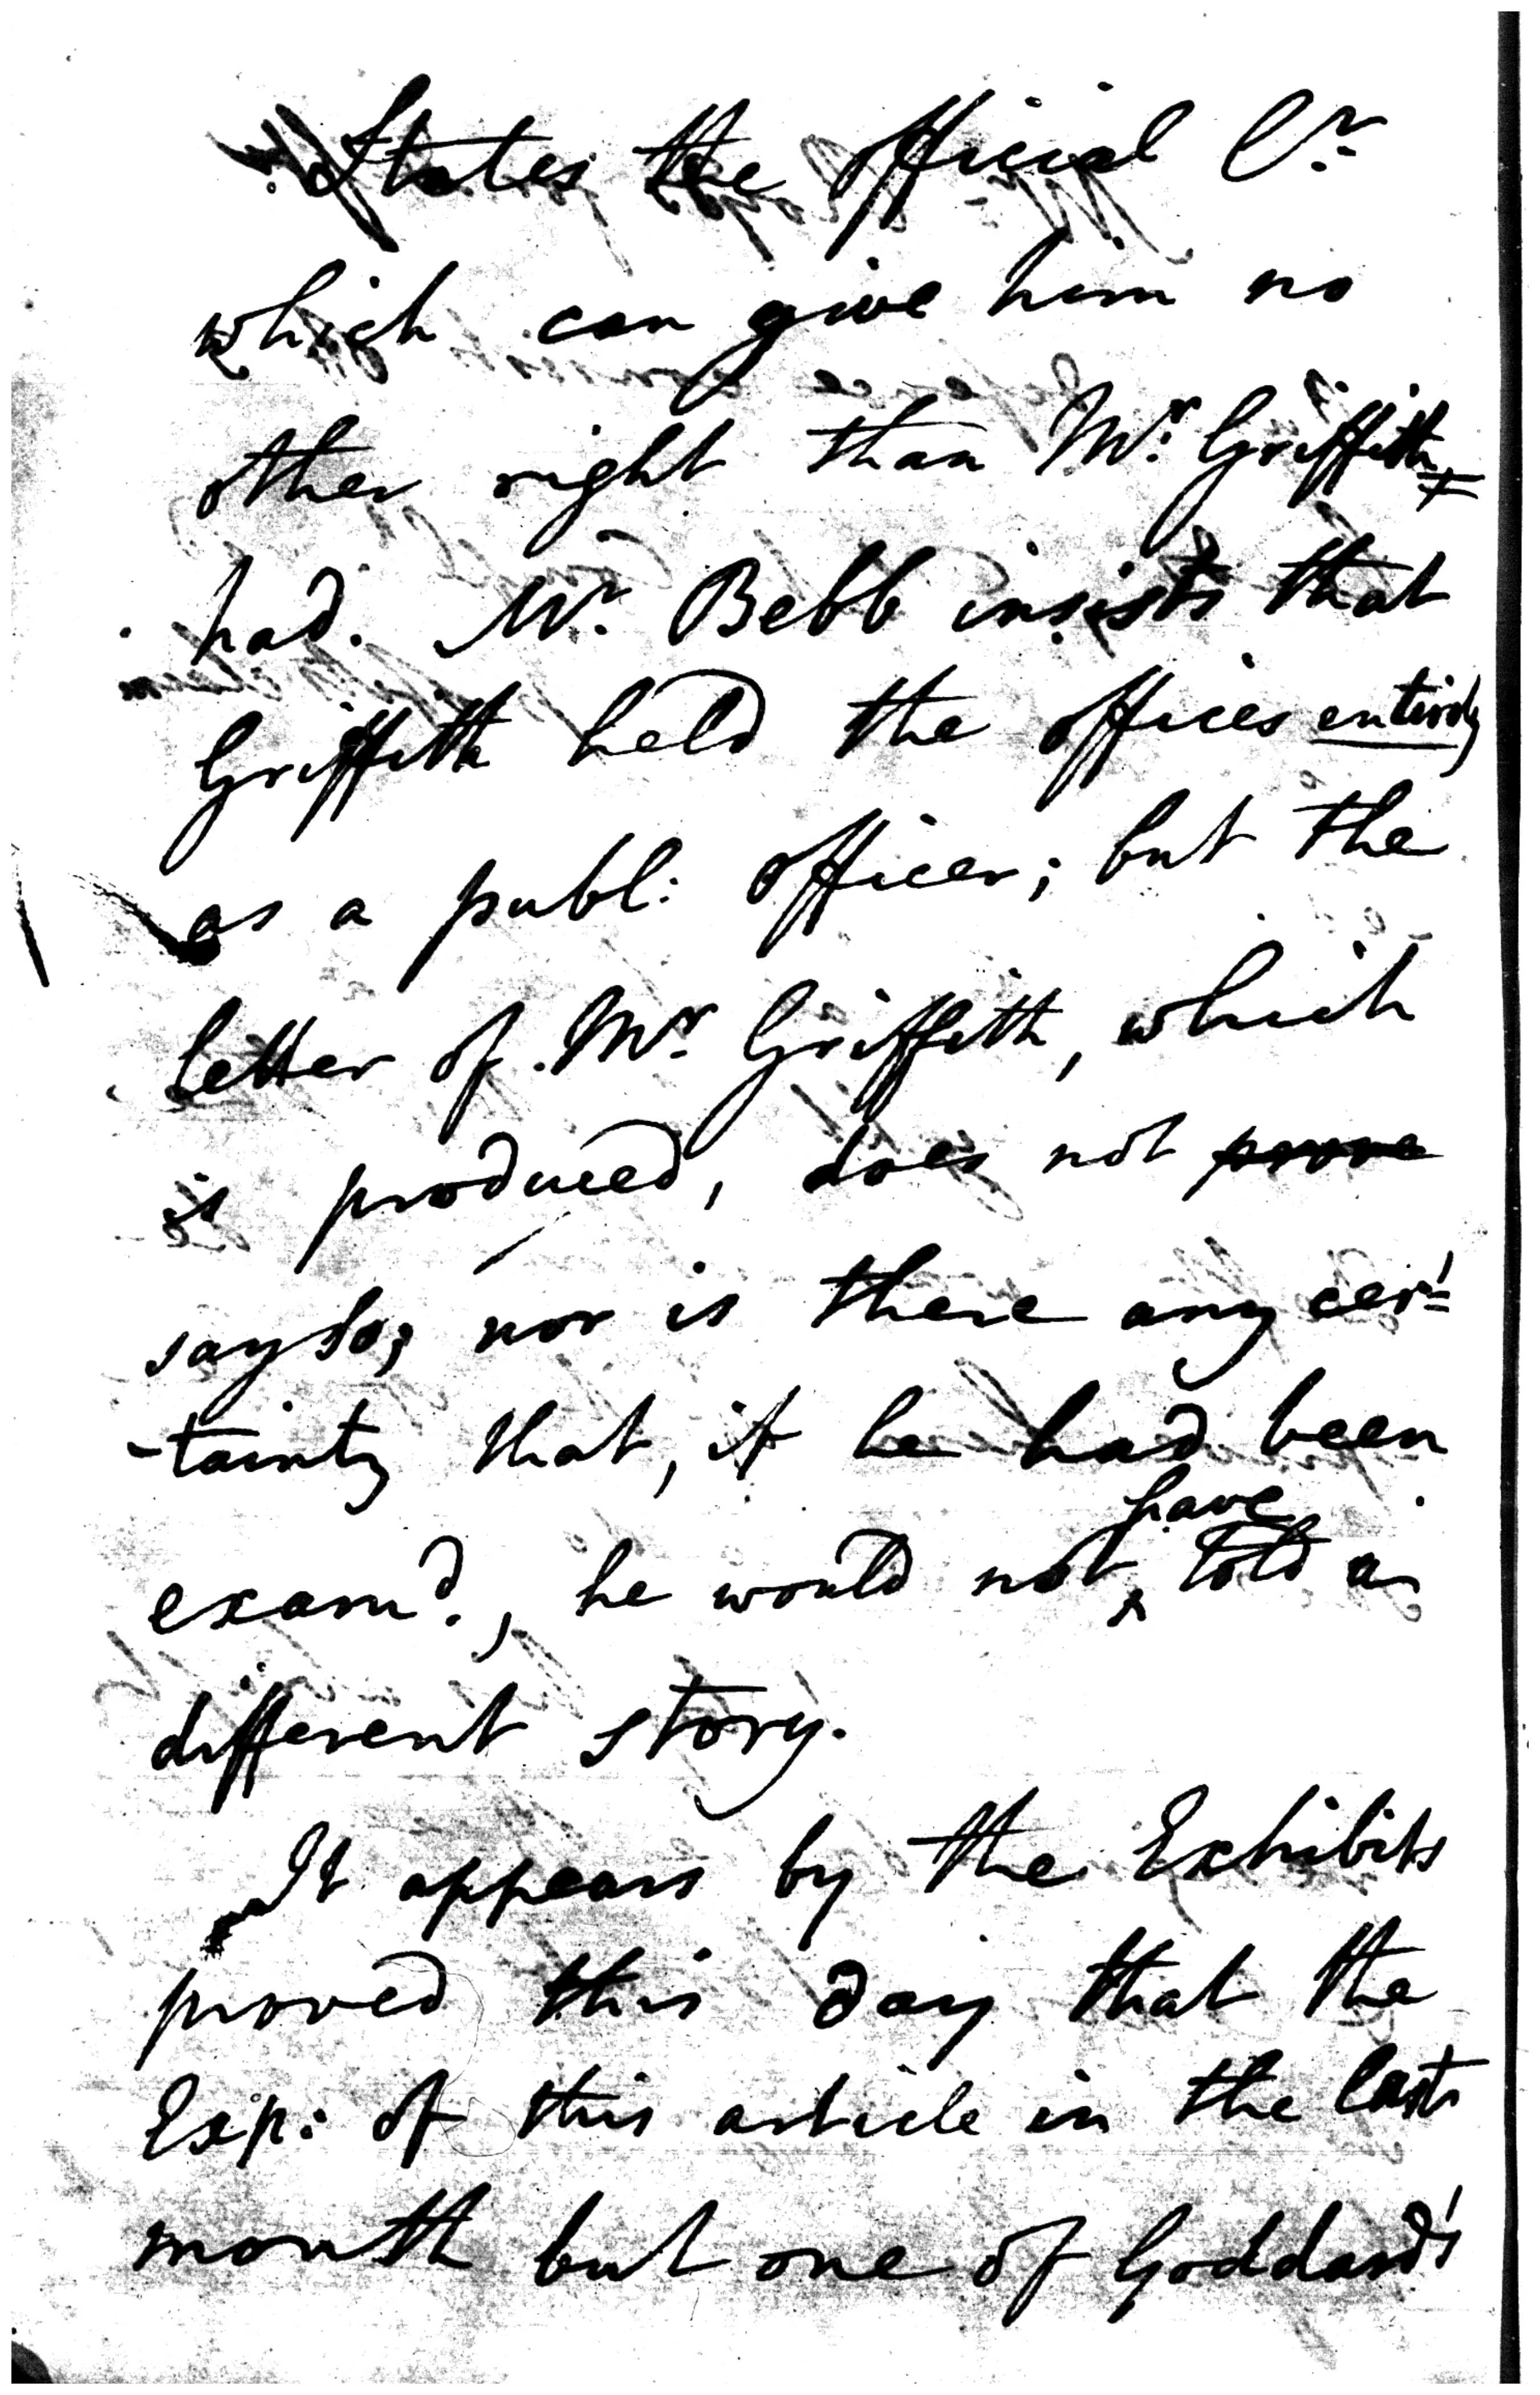 States the official Cr.
which can give him no
other right than Mr. Griffith
had. Mr. Bebb insists that
Griffith held the offices entirely
as a publ: officer; but the
letter of Mr. Griffith, which
is produced, does not prove
say so; nor is there any cer=
-tainty that, if he had been
examd., he would not have told a
different story.
It appears by the Exhibits
proved this day that the
Exp: of this article in the last
month but one of Goddard's